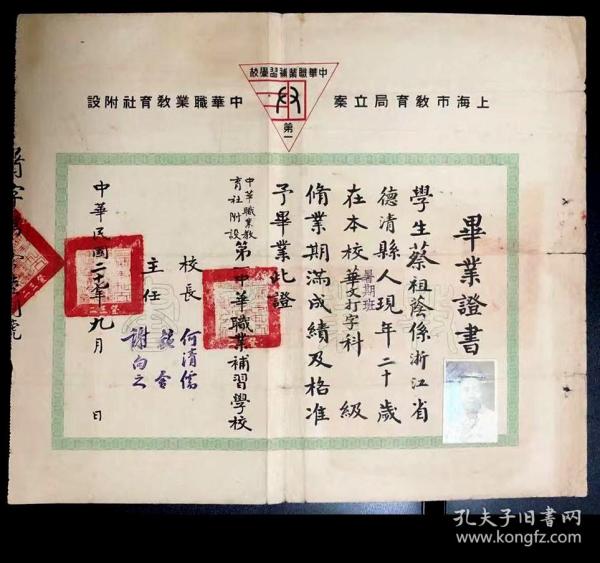 中華職業補習學校
第一
上海市教育局立案
中華職業教育社附設
畢業證書
學生蔡祖蔭係浙江省
德清縣人現年二十歲
在本校華文打字科 級
暑期班
脩業期滿成績及格准
予畢業此證
中華職業教
育社附設
第一中華職業補習學校
校長 何清儒
主任
謝向之
中華民國二十七年九月 日
孔夫子旧书网
www.kongfz.com